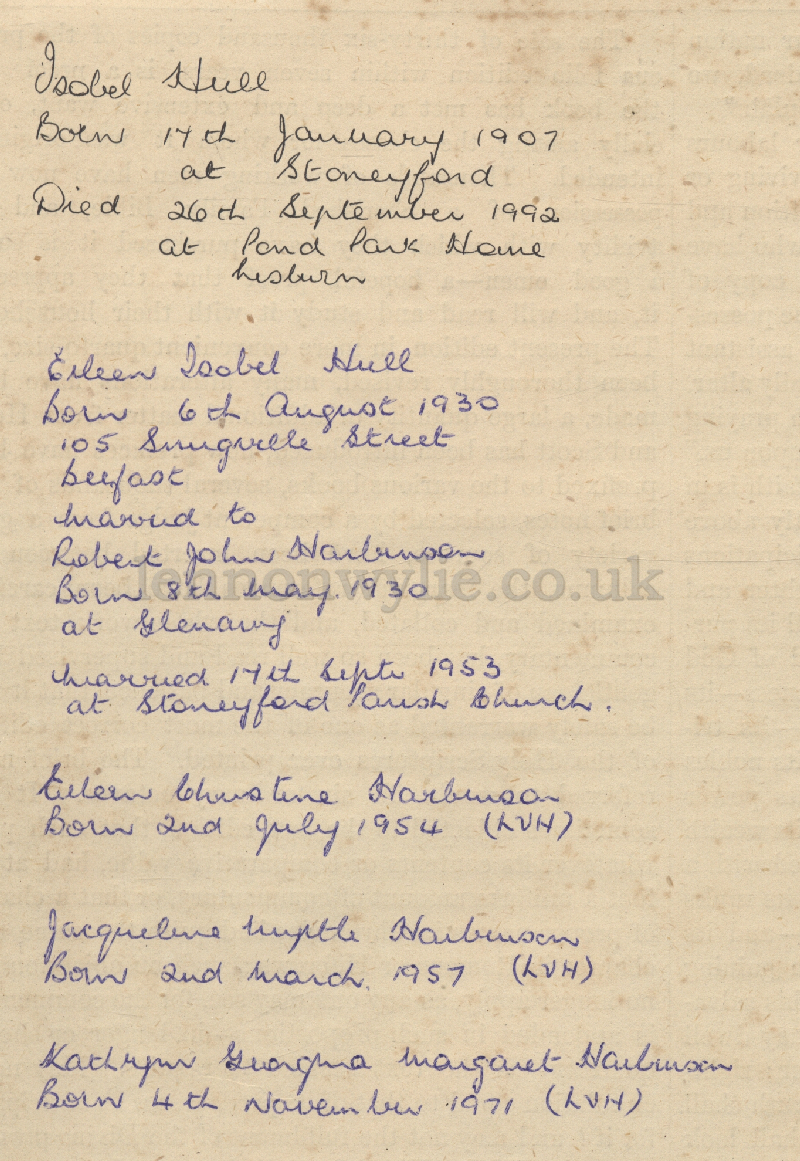 Isobel Hull
Born 17th January 1907
at Stoneyford
Died 26th September 1992
at Pond Park Home
Lisburn
Eileen Isobel Hull
Born 6th August 1930
105 Snugville Street
Belfast
Married to
Robert John Harbinson
Born 8th May 1930
lennonwylie.co.uk
at Glenavy
Married 17th Septr 1953
at Stoneyford Parish Church.
Eileen Christine Harbinson
Born 2nd July 1954 (LVH)
Jacqueline Myrtle Harbinson
Born 2nd March 1957 (LVH)
Kathryn Georgina Margaret Harbinson
Born 4th November 1971 (LVH)